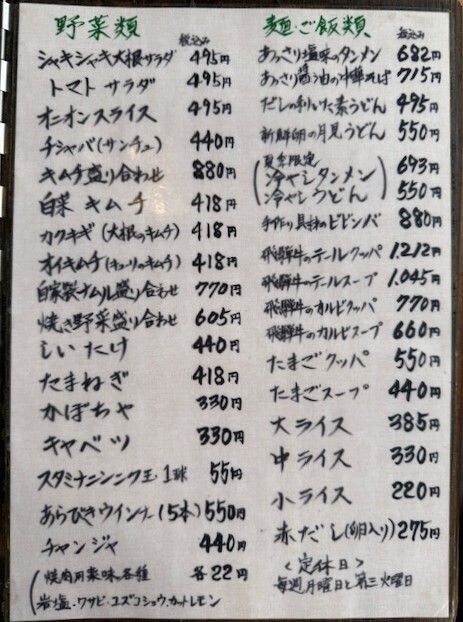 野菜類
税込み
シャキシャキ大根サラダ 495円
トマトサラダ 495円
オニオンスライス 495円
チシャバ(サンチュ) 440円
キムチ盛り合わせ 880円
白菜キムチ 418円
カクキギ(大根のキムチ) 418円
オイキムチ(キューリのキムチ) 418円
自家製ナムル盛り合わせ 770円
焼き野菜盛り合わせ 605円
しいたけ 440円
たまねぎ 418円
かぼちゃ 330円
キャベツ 330円
スタミナニンニク玉・1球 55円
あらびきウインナー(5本) 550円
チャンジャ 440円
(焼肉用薬味各種 各22円
岩塩・ワサビ・ユズコショウ、カットレモン
麺・ご飯類
税込み
あっさり塩味のタンメン 682円
あっさり醤油の中華そば 715円
だしの利いた素うどん 495円
新鮮卵の月見うどん 550円
夏季限定
(冷やしタンメン) 693円
冷やしうどん 550円
手作り具材のビビンバ 880円
飛騨牛のテールクッパ 1.212円
飛騨牛のテールスープ 1.045円
飛騨牛のカルビクッパ 770円
飛騨牛のカルビスープ 660円
たまごクッパ 550円
たまごスープ 440円
大ライス 385円
中ライス 330円
小ライス 220円
赤だし(卵入り) 275円
<定休日>
毎週月曜日と第三火曜日